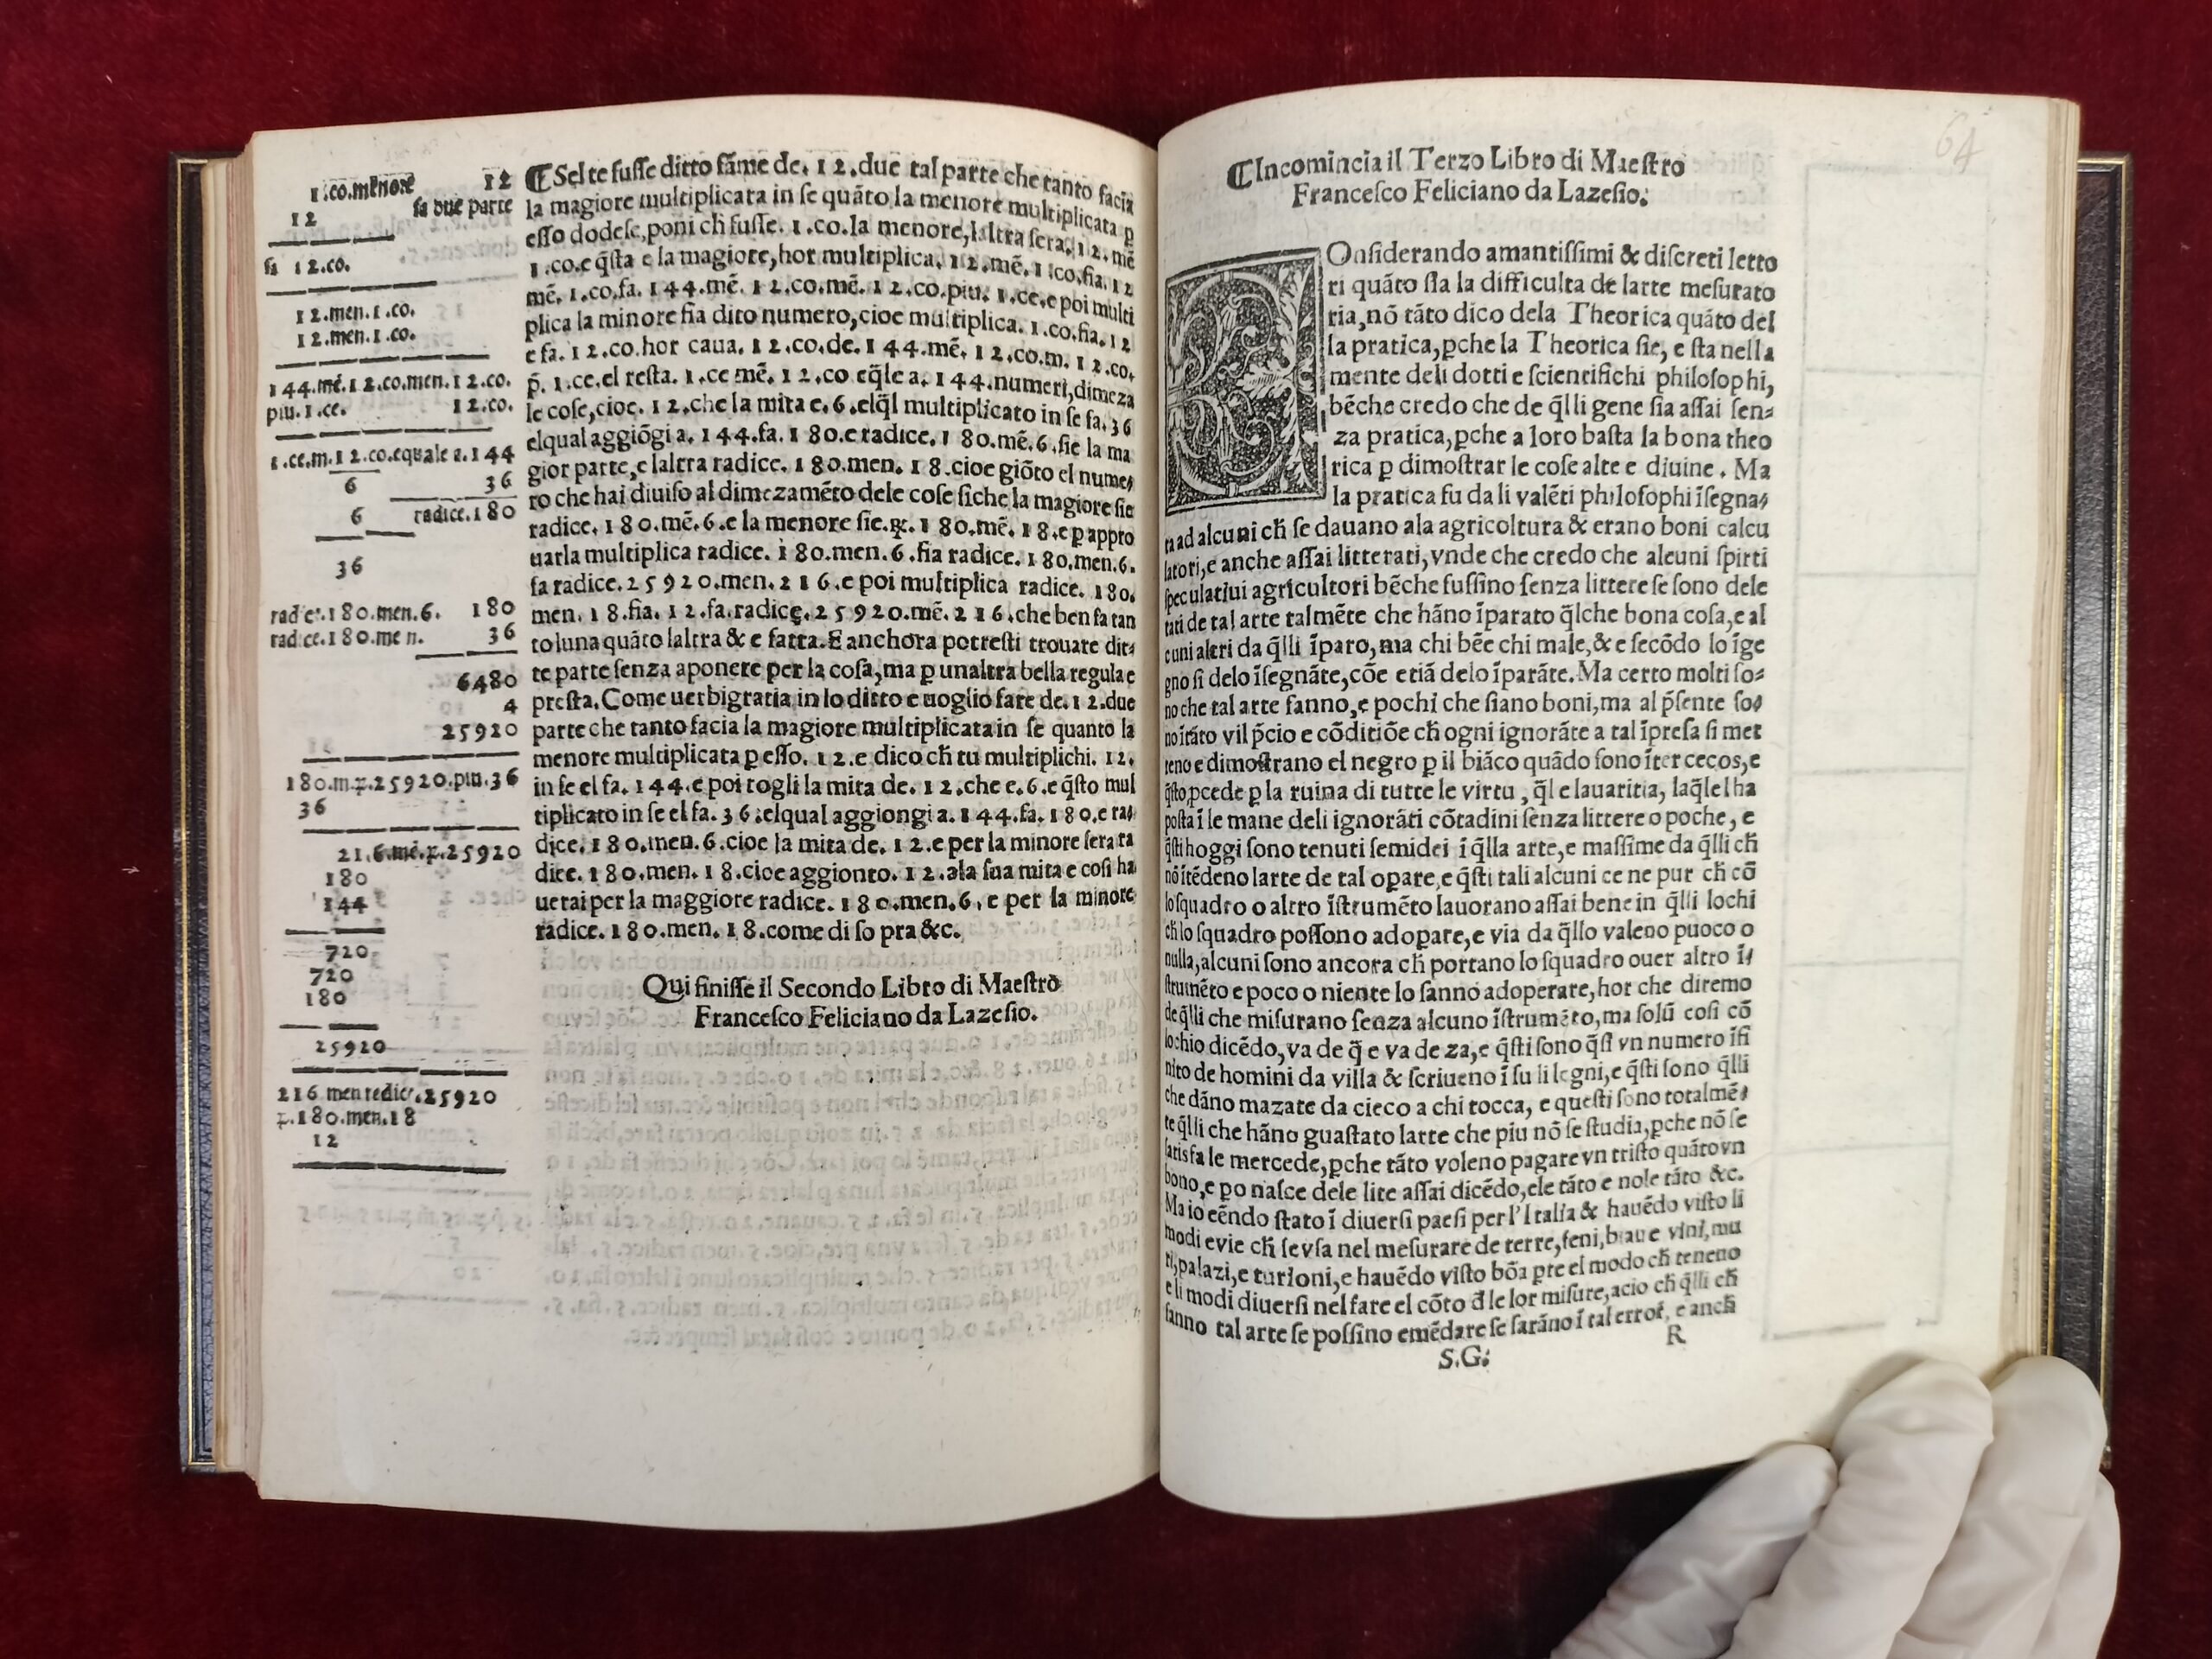 1.co.menore 12
12 fa due parte
fa 12.co.
12.men.1.co.
12.men.1.co.
144.mē.12.co.men.12.co.
piu.1.ce. 12.co.
1.ce.m.12.co.equale a.144
6 36
6 radice.180
36
radice.180.men.6. 180
radice.180.men. 36
6480
4
25920
180.m.ꝶ.25920.piu.36
36
216.mē.ꝶ.25920
180
144
720
720
180
25920
216 men redice.25920
ꝶ.180.men.18
12
¶Sel te fusse ditto fāme de.12.due tal parte che tanto facia
la magiore multiplicata in se quāto la menore multiplicata ꝑ
esso dodese,poni ch̄ fusse.1.co.la menore,laltra sera.12.mē
1.co.e q̄sta e la magiore,hor multiplica.12.mē.1.co.fia.12
mē.1.co.fa.144.mē.12.co.mē.12.co.piu.1.ce.e poi multi
plica la minore fia dito numero,cioe multiplica.1.co.fia.12
e fa.12.co.hor caua.12.co.de.144.mē.12.co.m.12.co.
p̄.1.ce.el resta.1.ce mē.12.co eq̄le a.144.numeri,dimeza
le cose,cioe.12.che la mita e.6.elq̄l multiplicato in se fa.36
elqual aggiōgi a.144.fa.180.e radice.180.mē.6.sie la ma
gior parte,e laltra radice.180.men.18.cioe giōto el nume-
ro che hai diuiso al dimezamēto dele cose siche la magiore sie
radice.180.mē.6.e la menore sie.ꝶ.180.mē.18.e ꝑ appro
uarla multiplica radice.180.men.6.fia radice.180.men.6.
fa radice.25920.men.216.e poi multiplica radice.180.
men.18.fia.12.fa.radice.25920.mē.216.che ben fa tan
to luna quāto laltra & e fatta.E anchora potresti trouare dit-
te parte senza aponere per la cosa,ma ꝑ unaltra bella regula e
presta.Come uerbigratia in lo ditto e uoglio fare de.12.due
parte che tanto facia la magiore multiplicata in se quanto la
menore multiplicata ꝑ esso.12.e dico ch̄ tu multiplichi.12.
in se el fa.144.e poi togli la mita de.12.che e.6.e q̄sto mul
tiplicato in se el fa.36.elqual aggiongi a.144.fa.180.e ra-
dice.180.men.6.cioe la mita de.12.e per la minore sera ra
dice.180.men.18.cioe aggionto.12.ala sua mita e cosi ha
uerai per la maggiore radice.180.men.6.e per la minore
radice.180.men.18.come di so pra &c.
Qui finisse il Secondo Libro di Maestro
Francesco Feliciano da Lazesio.
64
¶Incomincia il Terzo Libro di Maestro
Francesco Feliciano da Lazesio.
COnsiderando amantissimi & discreti letto
ri quāto sia la difficulta de larte mesurato
ria,nō tāto dico dela Theorica quāto del
la pratica,ꝑche la Theorica sie, e sta nella
mente deli dotti e scientifichi philosophi,
bēche credo che de q̄lli gene sia assai sen-
za pratica,ꝑche a loro basta la bona theo
rica ꝑ dimostrar le cose alte e diuine. Ma
la pratica fu da li valēti philosophi īsegna-
ta ad alcuni ch̄ se dauano ala agricoltura & erano boni calcu
latori,e anche assai litterati,vnde che credo che alcuni spirti
speculatiui agricultori bēche fussino senza littere se sono dele
tati de tal arte talmēte che hāno īparato q̄lche bona cosa,e al
cuni altri da q̄lli īparo,ma chi bēe chi male,& e secōdo lo īge
gno si delo īsegnāte,cōe etiā delo īparāte.Ma certo molti so-
no che tal arte fanno,e pochi che siano boni,ma al p̄sente so-
no ītāto vil p̄cio e cōditiōe ch̄ ogni ignorāte a tal īpresa si met
teno e dimostrano el negro ꝑ il biāco quādo sono īter cecos,e
q̄sto ꝓcede ꝑ la ruina di tutte le virtu,q̄l e lauaritia, laq̄le lha
posta ī le mane deli ignorāti cōtadini senza littere o poche, e
q̄sti hoggi sono tenuti semidei ī q̄lla arte,e massime da q̄lli ch̄
nō ītēdeno larte de tal oꝑare,e q̄sti tali alcuni ce ne pur ch̄ cō
lo squadro o altro īstrumēto lauorano assai bene in q̄lli lochi
ch̄ lo squadro possono adoꝑare,e via da q̄llo valeno puoco o
nulla,alcuni sono ancora ch̄ portano lo squadro ouer altro ī-
strumēto e poco o niente lo sanno adoperare,hor che diremo
de q̄lli che misurano senza alcuno īstrumēto,ma solū cosi cō
lochio dicēdo,va de q̄ e va de za,e q̄sti sono q̄si vn numero īfi
nito de homini da villa & scriueno ī su li legni,e q̄sti sono q̄lli
che dāno mazate da cieco a chi tocca, e questi sono totalmē-
te q̄lli che hāno guastato larte che piu nō se studia,ꝑche nō se
satisfa le mercede,ꝑche tāto voleno pagare vn tristo quāto vn
bono,e ꝑo nasce dele lite assai dicēdo,ele tāto e nole tāto &c.
Ma io eēndo stato ī diuersi paesi per l'Italia & hauēdo visto li
modi e vie ch̄ se vsa nel mesurare de terre,feni,biaue vini,mu
ri,palazi,e turioni,e hauēdo visto bōa ꝑte el modo ch̄ teneno
e li modi diuersi nel fare el cōto đ le lor misure,acio ch̄ q̄lli ch̄
fanno tal arte se possino emēdare se sarāno ī tal error, e anch̄
R
S.G.